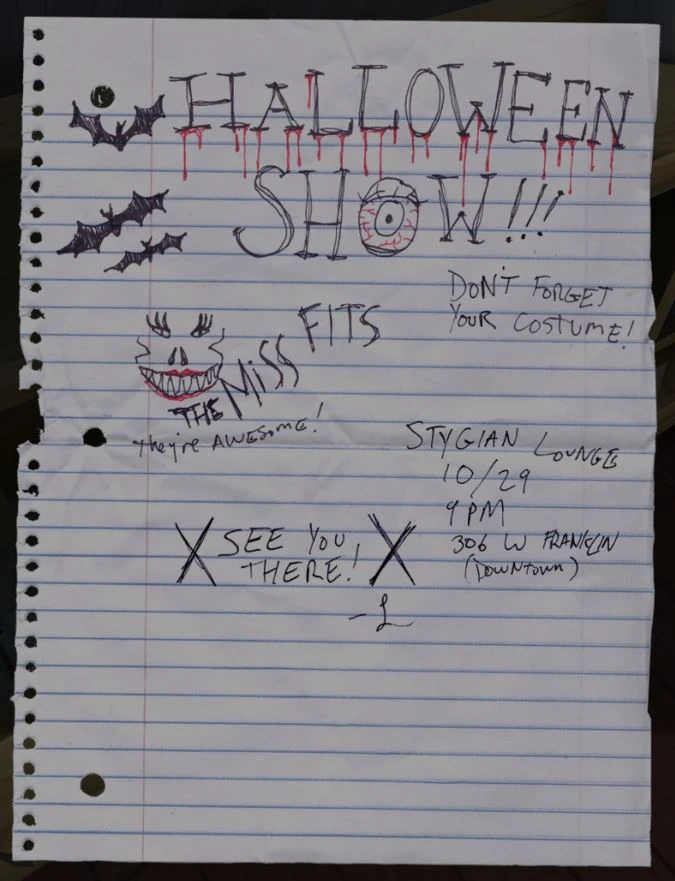 HALLOWEEN
SHOW!!!
DON'T FORGET
YOUR COSTUME!
THE MISS FITS
they're AWESOME!
STYGIAN LOUNGE
10/29
9 PM
306 W FRANKLIN
(DOWNTOWN)
X SEE YOU X
THERE!
-L